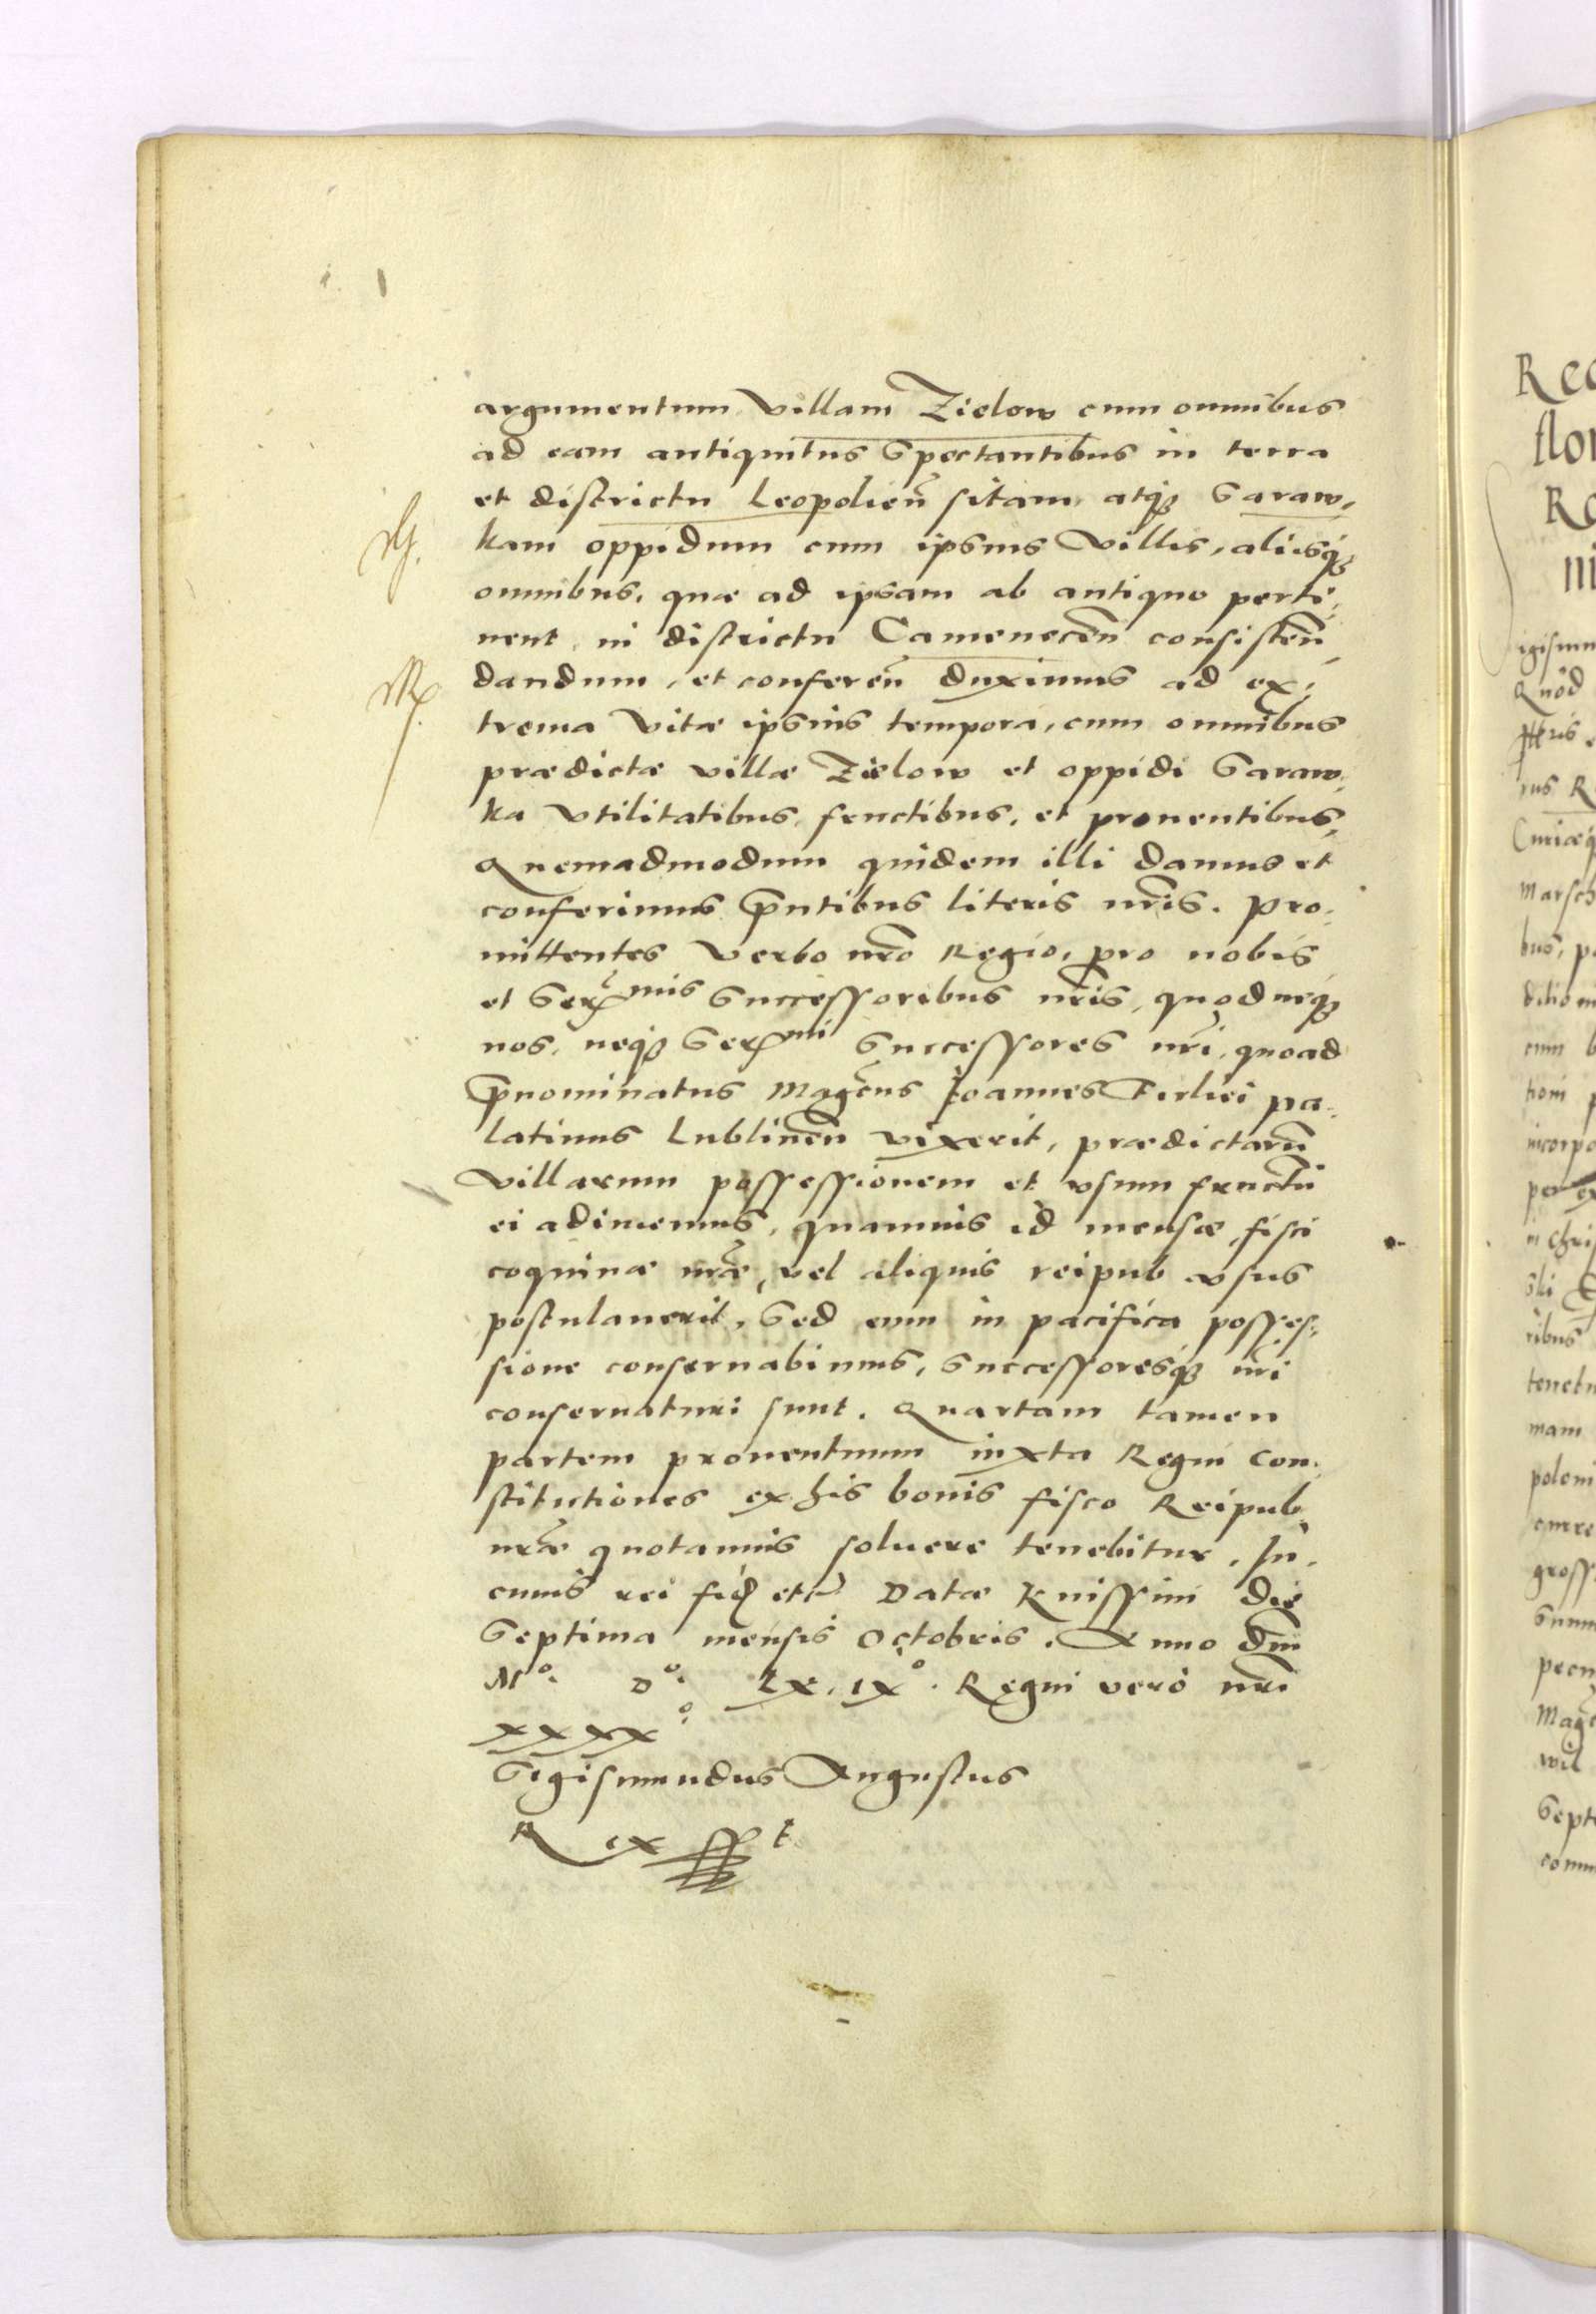 argumentum villam Zielow cum omnibus
ad eam antiquitus spectantibus in terra
et districtu Leopolień sitam, atq3 Saraw,
kam oppidum cum ipsius villis, alijsq3
omnibus, quæ ad ipsam ab antiquo perti,
nent, in districtu Camenecen̄ consisteñ
dandum, et confereñ duximus ad ex,
trema vitæ ipsius tempora, cum omnibus
prædictæ villæ Zielow et oppidi Saraw,
ka vtilitatibus, fructibus, et prouentibus,
Quemadmodum quidem illi damus et
conferimus p̄ntibus literis nr̄is. Pro,
mittentes verbo nr̄o Regio, pro nobis
et Ser^mis Successoribus nr̄is, quod neq3
nos, neq3 Ser^mi Successores nr̄i, quoad
p̄nominatus Mag̃cus Joannes Firliei pa,
latinus Lublineñ vixerit, prædictarū
villarum possessionem et vsum fructū
ei adimemus, quamuis id mensæ, fisci
coquinæ nr̄æ, vel aliquis reipub vsus
postulauerit, Sed eum in pacifica posses,
sione conseruabimus, Successoresq3 nr̄i
conseruaturi sunt. Quartam tamen
partem prouentuum iuxta Regni Con,
stitutiones ex his bonis fisco Reipub
nr̄æ quotannis soluere tenebitur. In,
cuius rei fid etc Datæ Knissini die
Septima mensis Octobris. Anno dn̄i
M°. D°. LX.IX°. Regni verò nr̄i
XXXX°
Sigismundus Augustus
R ex sst